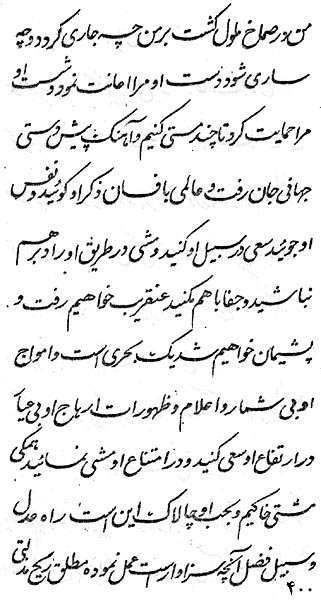 من در صماخ طول گشت بر من چه جاری گردد و چه
ساری شود دست او مرا اعانت نمود و شست او
مرا حمایت کرد تا چند مستی کنیم و آهنگ پیش دستی
جهانی جان رفت و عالمی بافسان ذکر او گوئید و نفس
او جوئید سعی در سبیل او کنید و مشی در طریق او را در هم
نباشید و جفا با هم مکنید عنقریب خواهیم رفت و
پشیمان خواهیم شد یک بحری است و امواج
او بی شمار و اعلام و ظهورات ارباح او بی عیا
در ارتفاع او سعی کنید و در امتناع او مشی نمائید همگی
مشتی خاکیم و بحب او چالاک این است راه عدل
و سبیل فضل آنچه سزاوار است عمل نموده مطلق
۴۰۰